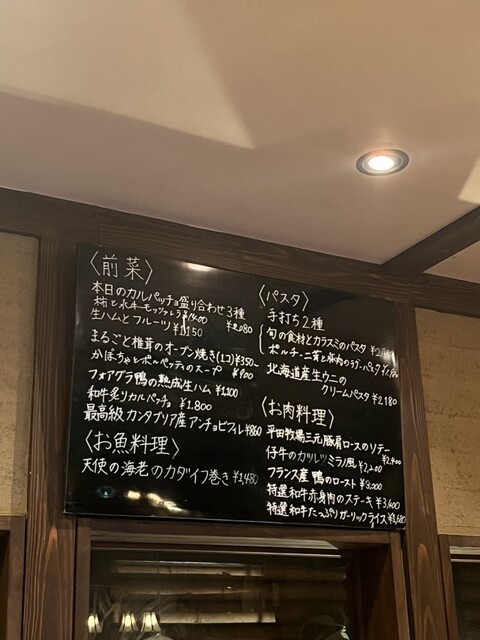 〈前菜〉
本日のカルパッチョ盛り合わせ3種 ¥2,080
柿と水牛モッツァレラ ¥1400
生ハムとフルーツ ¥1,150
まるごと椎茸のオーブン焼き(1コ)¥350~
かぼちゃとポルペッティのスープ ¥900
フォアグラ鴨の熟成生ハム ¥1,100
和牛炙りカルパッチョ ¥1,800
最高級カンタブリア産アンチョビフィレ ¥860
〈お魚料理〉
天使の海老のカダイフ巻き ¥1,480
〈パスタ〉
手打ち2種
旬の食材とカラスミのパスタ
ポルチーニ茸と
北海道産生ウニの
クリームパスタ ¥2,180
〈お肉料理〉
平田牧場三元豚肩ロースのソテー ¥2,400
仔牛のカツレツミラノ風 ¥2,200
フランス産 鴨のロースト ¥3,000
特選和牛赤身肉のステーキ ¥3,600
特選和牛たっぷりガーリックライス